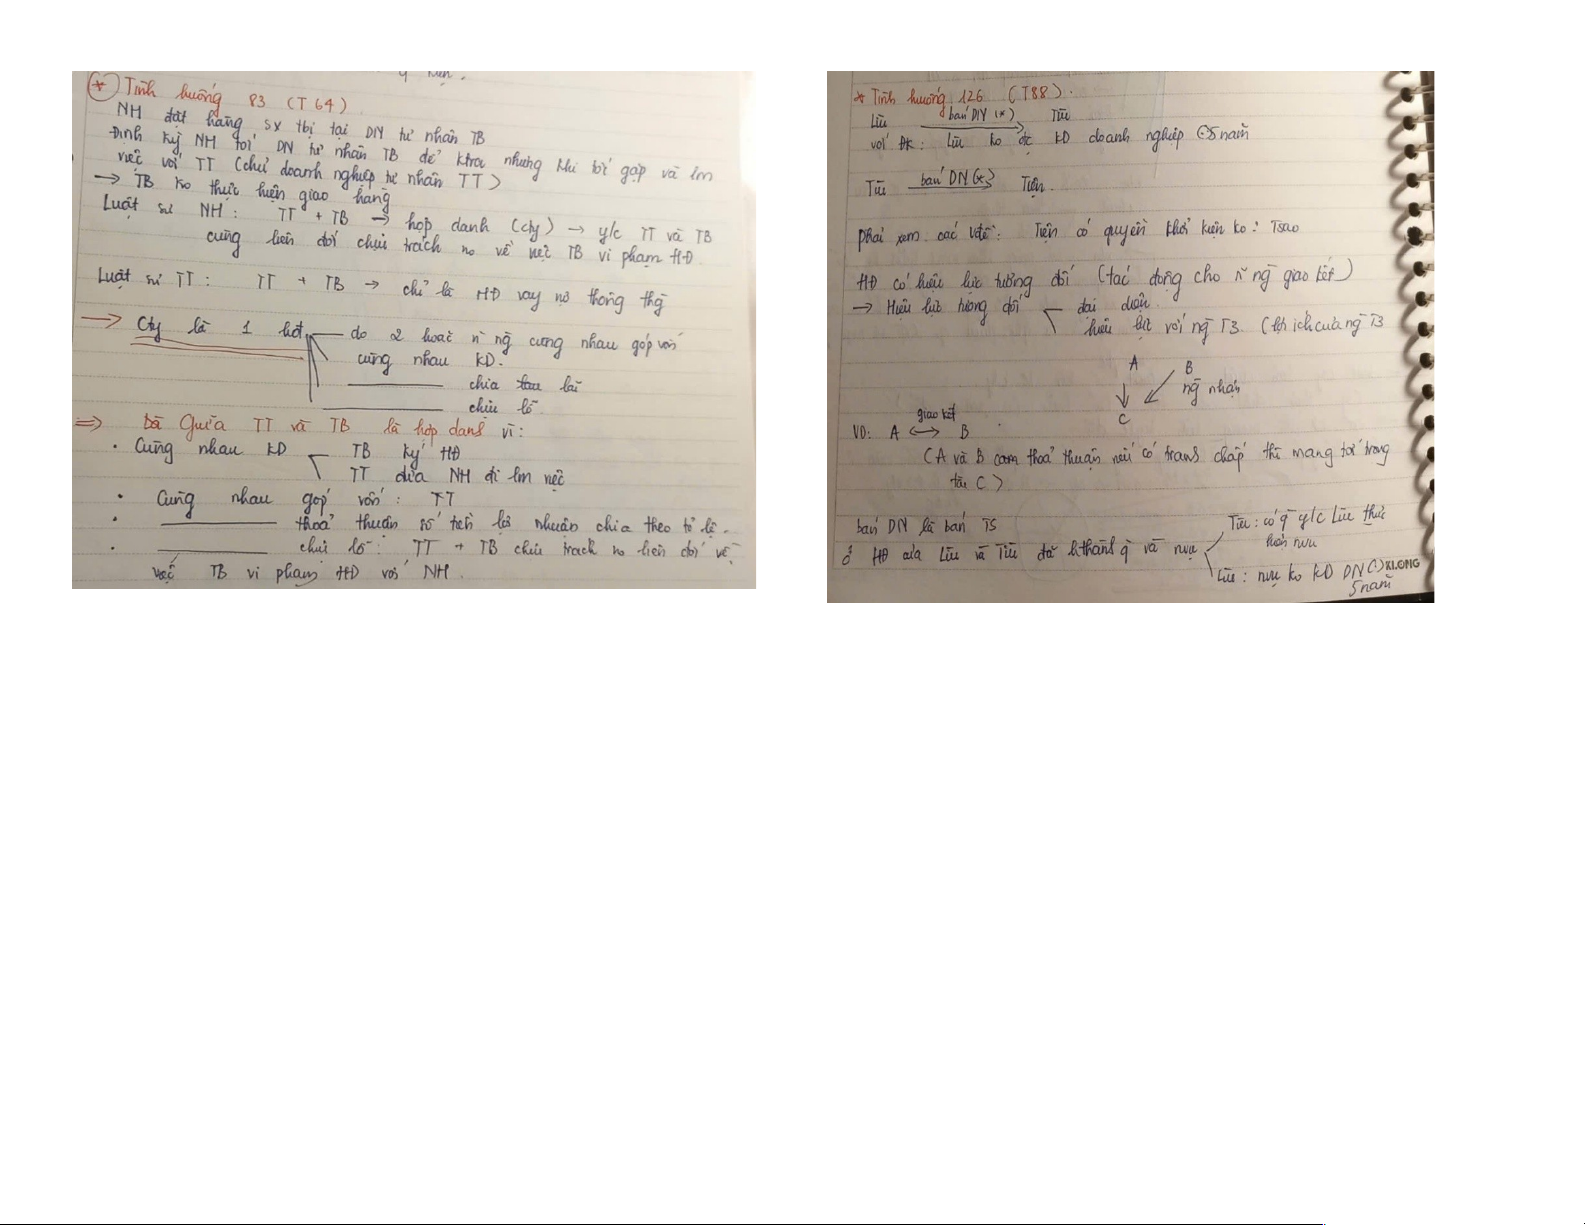 * Tình huống 83 (T 64)
NH đặt hàng sx tbị tại DN tư nhân TB
Định kỳ NH tới DN tư nhân TB để ktra nhưng khi tới gặp và lm
việc với TT (chủ doanh nghiệp tư nhân TT)
→ TB ko thực hiện giao hàng
Luật sư NH : TT + TB → hợp danh (cty) → y/c TT và TB
cùng liên đới chịu trách no về việc TB vi phạm HĐ.
Luật sư TT : TT + TB → chỉ là HĐ vay nợ thông thg
→ Cty là 1 hđ
do 2 hoặc n ng cùng nhau góp vốn
cùng nhau KD.
chia lãi
chịu lỗ
⇒ Giữa TT và TB là hợp danh vì :
• Cùng nhau KD
TB ký HĐ
TT đưa NH đi lm việc
• Cùng nhau góp vốn : TT
• thoả thuận số tiền lợi nhuận chia theo tỉ lệ.
• chịu lỗ : TT + TB chịu trách no liên đới về
việc TB vi phạm HĐ với NH.
* Tình huống 126 (T88).
Lưu bán DN (*) Tửu
với ĐK : Lưu ko đc KD doanh nghiệp 5 năm
Tửu bán DN (*) Tiện.
Phải xem các vđề : Tiện có quyền khởi kiện ko : Tsao
HĐ có hiệu lực tương đối (tác động cho n ng giao kết)
→ Hiệu lực tương đối
đại diện
hiệu lực với ng T3. (lợi ích của ng T3
A
B
ng nhận
C
giao kết
VD : A ↔ B
(A và B cam thoả thuận nếu có tranh chấp thì mang tới trọng
tài C)
bán DN là bán TS
ở HĐ của Lưu và Tửu đã hthành q và nvụ
Tửu : có q y/c Lưu thực
hiện nvụ
Lưu : nvụ ko KD DN (*)
5 năm
KLONG